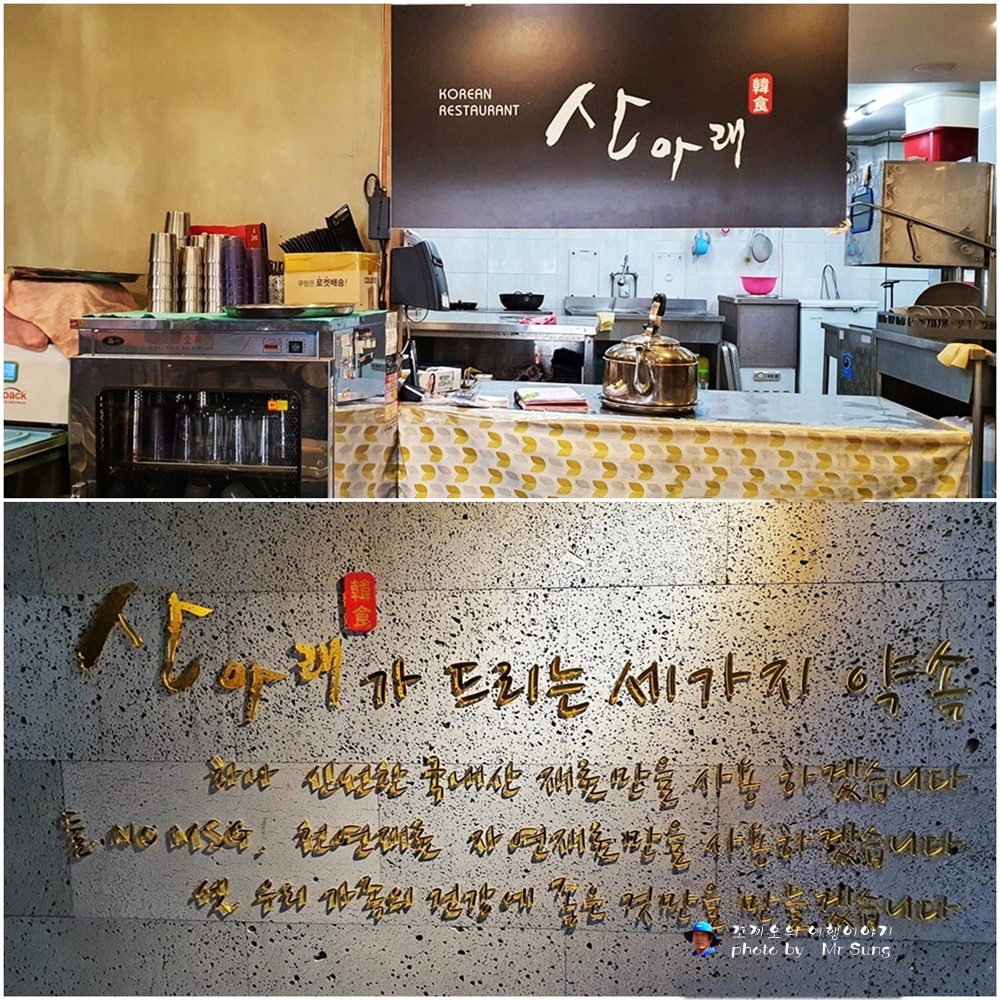 KOREAN
RESTAURANT
산아래
韓食
쿠팡은 로켓배송!
pack
산아래가 드리는 세가지 약속
韓食
하나 신선한 국내산 재료만을 사용 하겠습니다
둘 NO MSG, 천연재료 자연재료만을 사용하겠습니다
셋 우리 가족의 건강에 좋은 것만을 만들겠습니다
꼬끼오의 여행이야기
photo by Mr Sung